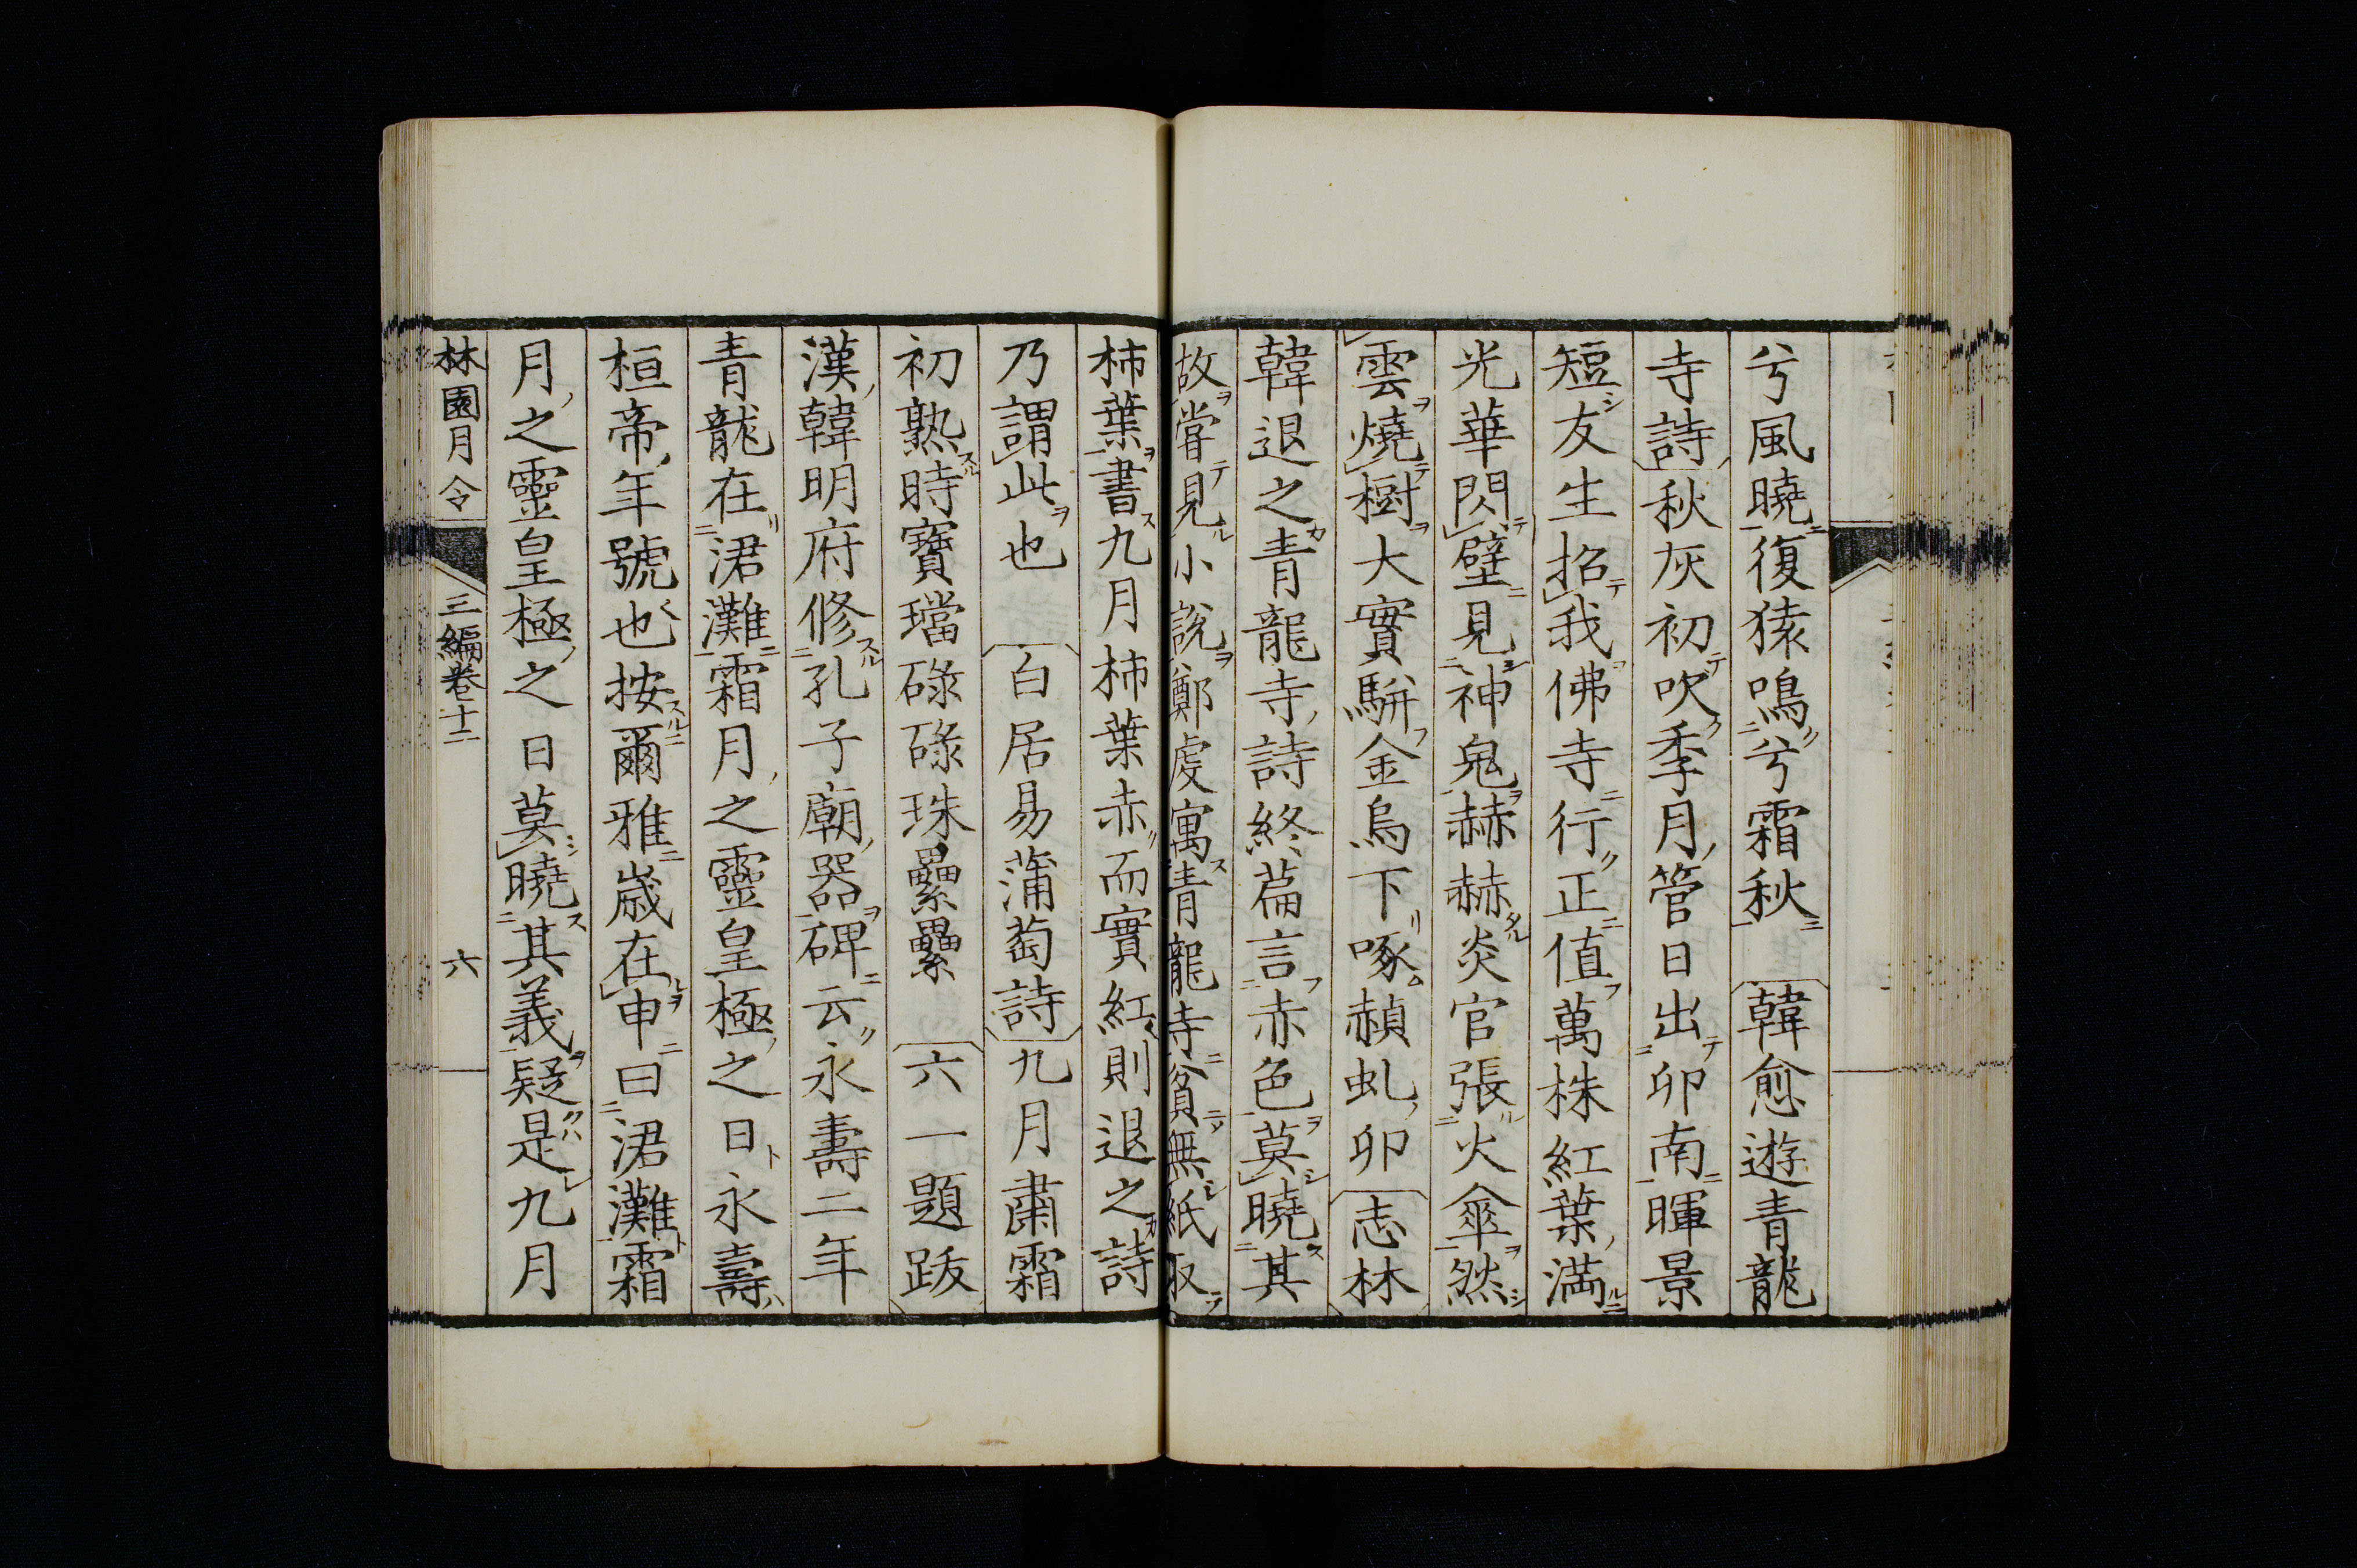 兮風曉復猿鳴兮霜秋 韓愈遊青龍
寺詩秋灰初吹季月管日出卯南暉景
短友生招我佛寺行正值萬株紅葉滿
光華閃壁見神鬼赫赫炎官張火傘然
雲燒樹大實駢金烏下啄赬虬卵志林
韓退之青龍寺詩終篇言赤色莫曉其
故嘗見小說鄭虔寓青龍寺貧無紙取
柿葉書九月柿葉赤而實紅則退之詩
乃謂此也 白居易蒲萄詩九月肅霜
初熟時寶璫碌碌珠纍纍 六一題跋
漢韓明府修孔子廟器碑云永壽二年
青龍在涒灘霜月之靈皇極之日永壽
桓帝年號也按爾雅歲在申曰涒灘霜
月之靈皇極之日莫曉其義疑是九月
林園月令 三編卷十二 六